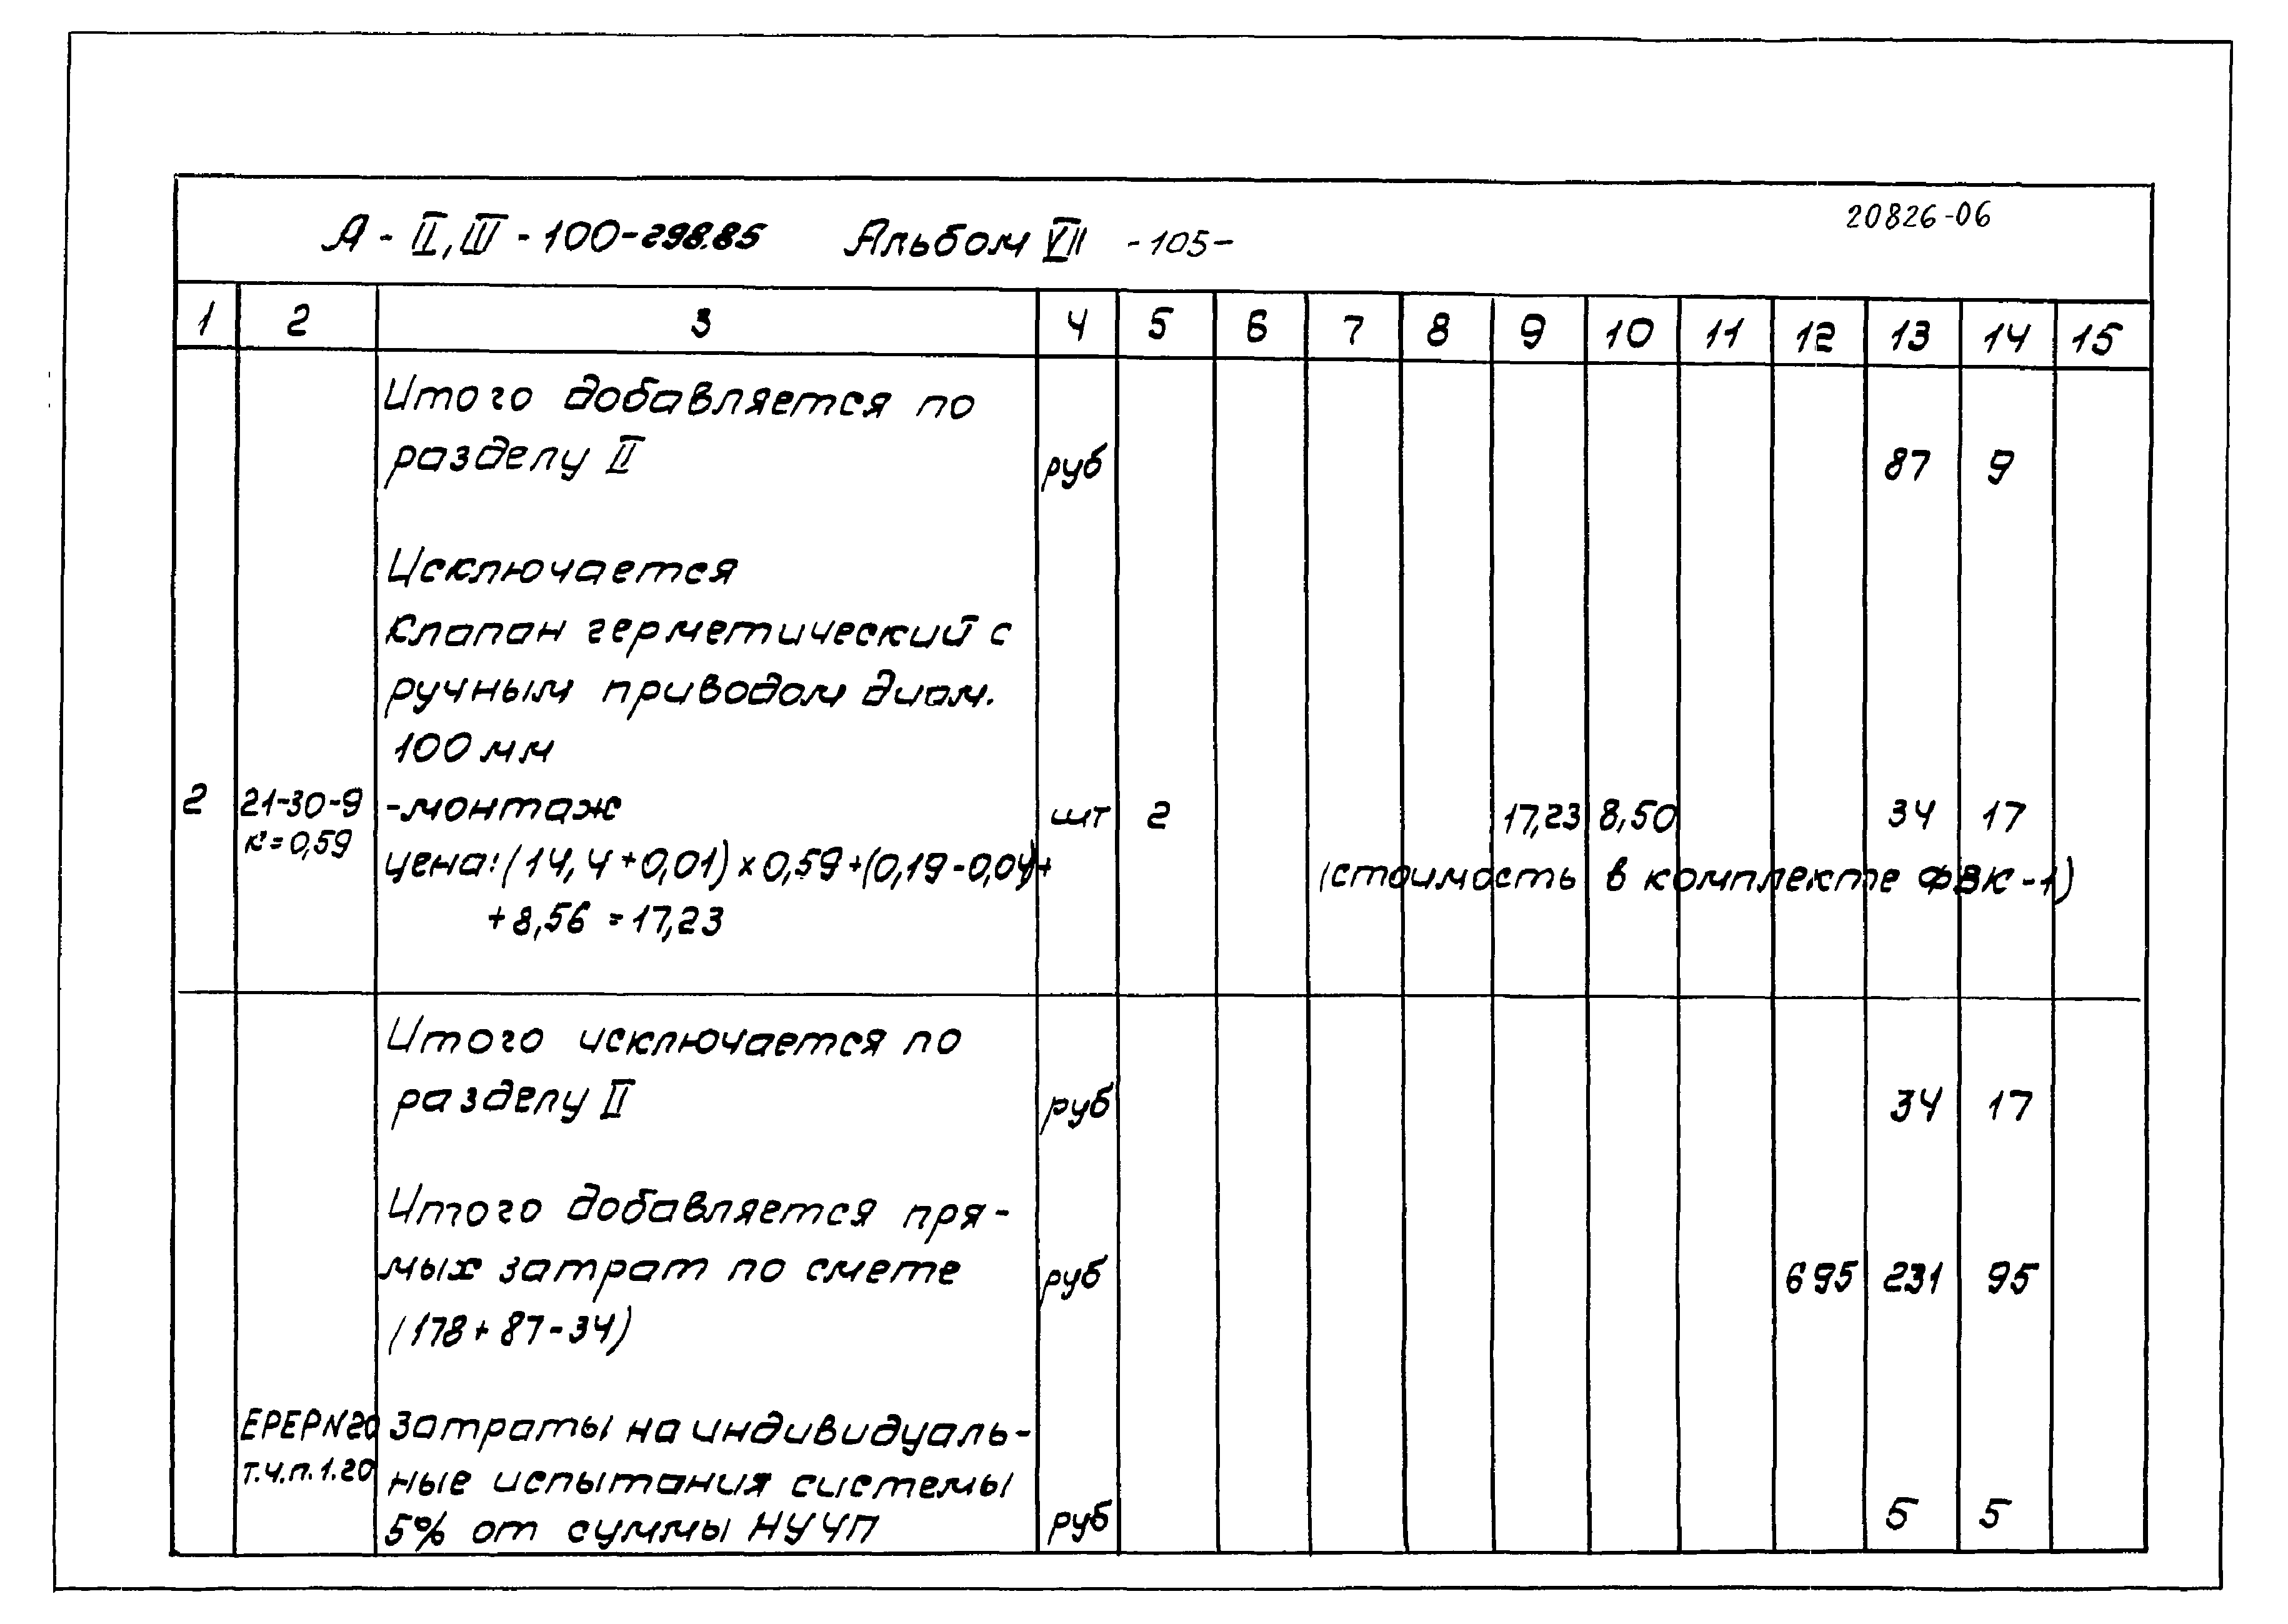 А - II, III - 100-298.85 Альбом VII -105- 20826-06
1 2 3 4 5 6 7 8 9 10 11 12 13 14 15
Итого добавляется по
разделу II руб 87 9
Исключается
клапан герметический с
ручным приводом диам.
100 мм
2 21-30-9 -монтаж шт 2 17,23 8,50 34 17
к=0,59
цена: (14,4+0,01)×0,59+(0,19-0,04)+ (стоимость в комплекте ФВК-1)
+8,56 =17,23
Итого исключается по
разделу II руб 34 17
Итого добавляется пря-
мых затрат по смете руб 695 231 95
(178+87-34)
ЕРЕРN20 Затраты на индивидуаль-
т.ч.п.1.20 ные испытания системы
5% от суммы НУЧП руб 5 5